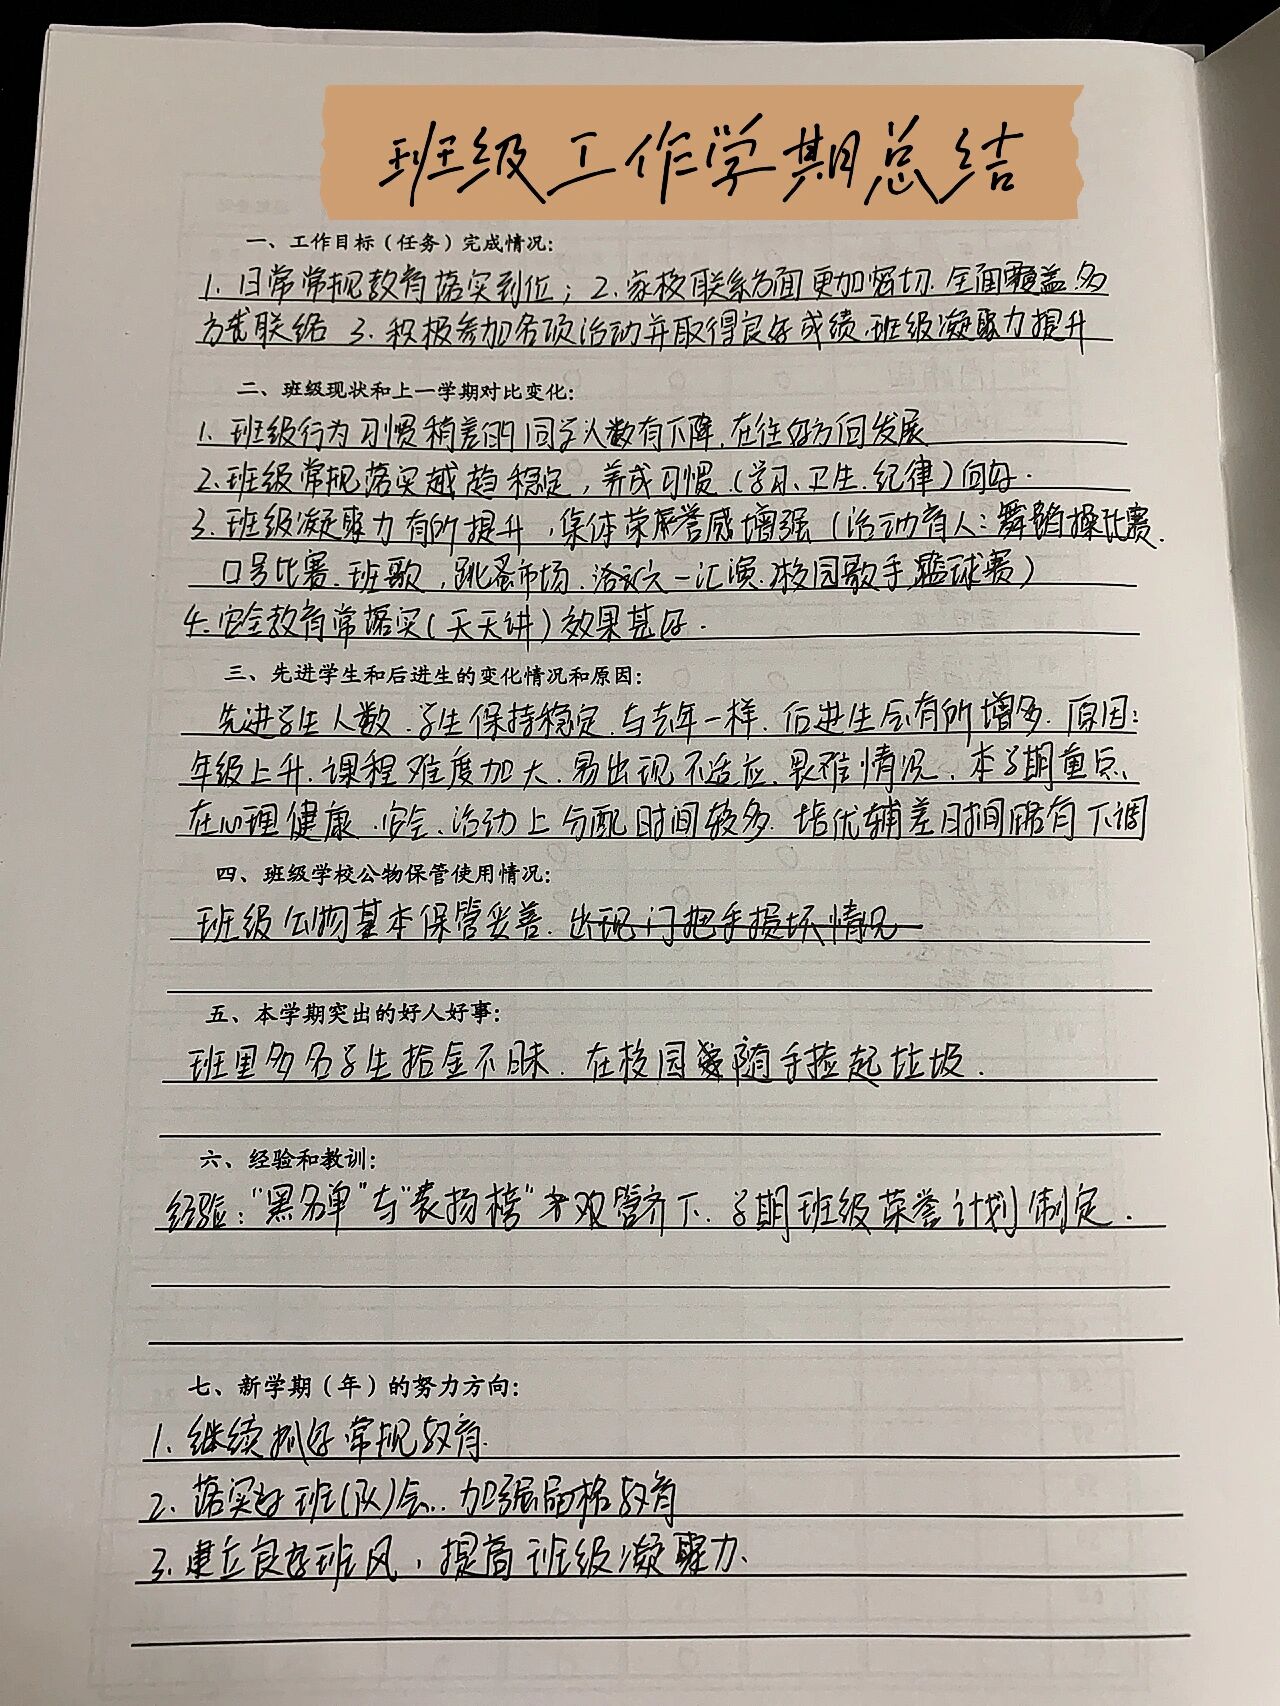 班级工作学期总结
一、工作目标（任务）完成情况：
1. 日常常规教育落实到位；2. 家校联系方面更加密切. 全面覆盖. 多
方式联络 3. 积极参加各项活动并取得良好成绩. 班级凝聚力提升
二、班级现状和上一学期对比变化：
1. 班级行为习惯稍差的同学人数有下降. 在往好方向发展
2. 班级常规落实越趋稳定，养成习惯（学习、卫生、纪律）向好.
3. 班级凝聚力有所提升，集体荣誉感增强（活动育人：舞蹈操比赛.
口号比赛. 班歌，跳蚤市场. 六一汇演. 校园歌手. 篮球赛）
4. 安全教育常落实（天天讲）效果甚好.
三、先进学生和后进生的变化情况和原因：
先进学生人数. 学生保持稳定. 与去年一样. 后进生会有所增多. 原因：
年级上升. 课程难度加大. 易出现不适应. 畏难情况. 本学期重点
在心理健康. 安全. 活动上分配时间较多. 培优辅差时间略有下调
四、班级学校公物保管使用情况：
班级公物基本保管妥善. 出现门把手损坏情况
五、本学期突出的好人好事：
班里多名学生拾金不昧. 在校园随手捡起垃圾.
六、经验和教训：
经验：“黑名单”与“表扬榜”双管齐下. 学期班级荣誉计划制定.
七、新学期（年）的努力方向：
1. 继续抓好常规教育.
2. 落实好班（队）会.. 加强品格教育
3. 建立良好班风，提高班级凝聚力.